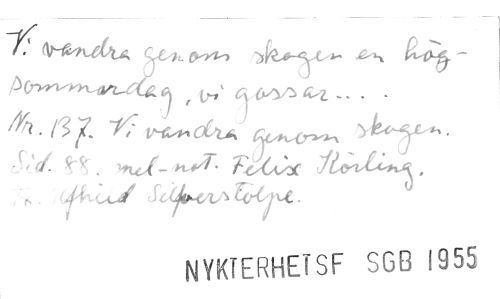 Vi vandra genom skogen en hög-
sommardag, vi gossar....
Nr. 137. Vi vandra genom skogen.
Sid. 88. mel-not. Felix Körling.
Alfhild Silfverstolpe.
NYKTERHETSF SGB 1955